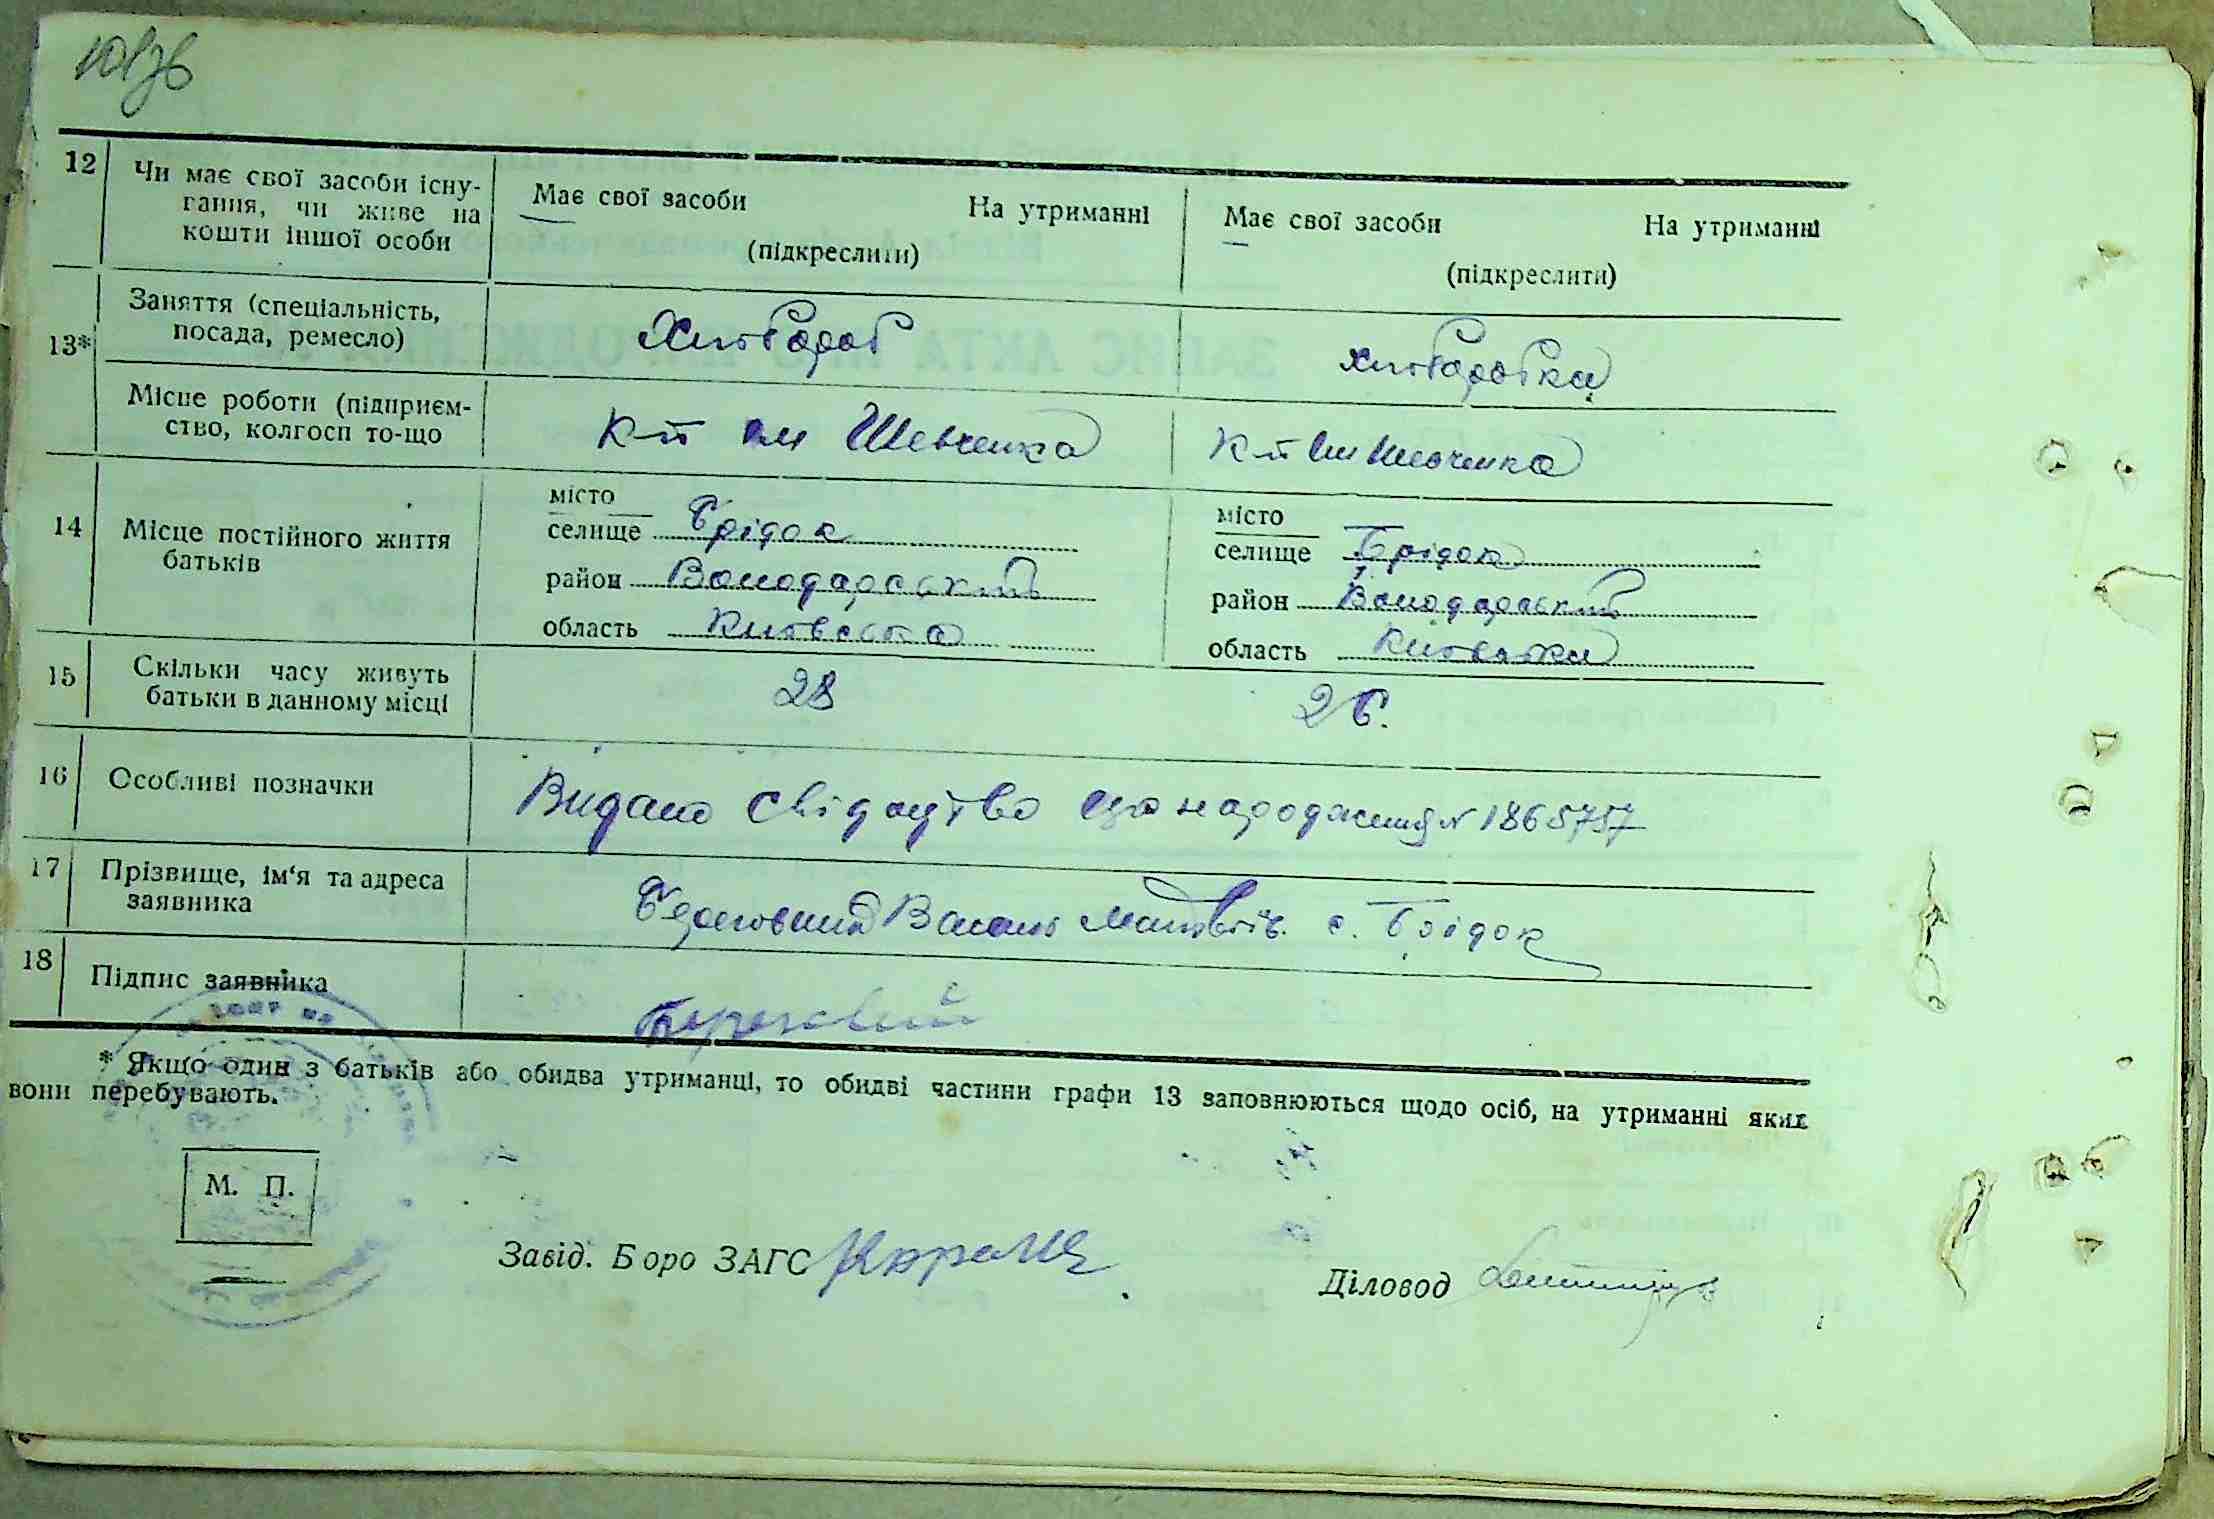 12 Чи має свої засоби існу-
гання, чи живе на
кошти іншої особи
Має свої засоби На утриманні
(підкреслити)
Має свої засоби На утриманні
(підкреслити)
13*
Заняття (спеціальність,
посада, ремесло)
Хлібороб
хліборобка
Місце роботи (підприєм-
ство, колгосп то-що
К-п ім Шевченка
К-п ім Шевченка
14 Місце постійного життя
батьків
місто
селище Брідок
район Володарський
область Київська
місто
селище Брідок
район Володарський
область Київська
15 Скільки часу живуть
батьки в данному місці
28
26.
16 Особливі позначки
Видано свідоцтво про народження № 1865757
17 Прізвище, ім'я та адреса
заявника
Василь с. Брідок
18 Підпис заявника
* Якщо один з батьків або обидва утриманці, то обидві частини графи 13 заповнюються щодо осіб, на утриманні яких
вони перебувають.
М. П.
Завід. Боро ЗАГС
Діловод